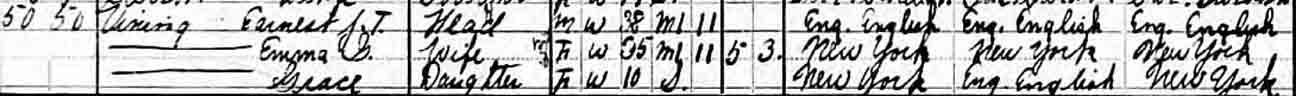 50 50 Vining Earnest J.T. Head m w 38 M1 11 Eng. English Eng. English Eng. English
Emma D. Wife F w 35 M1 11 5 3. New York New York New York
Grace Daughter F w 10 S. New York Eng. English New York